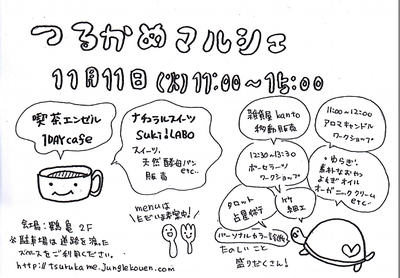 つるかめマルシェ
11月11日(火)11:00〜15:00
喫茶エンゼル
1DAYcafe
ナチュラルスイーツ
Suki!LABO
スイーツ、
天然酵母パン
販売 etc..
雑貨屋 kanto
移動販売
11:00〜12:00
アロマキャンドル
ワークショップ
12:30〜13:30
ポーセラーツ
ワークショップ
・ゆらぎ、
素朴なおやつ
よもぎオイル
オーガニッククリーム
etc..
タロット
占星術
竹
細工
パーソナルカラー診断
menuは
ただいま考案中!
会場：鶴亀2F
※駐車場は道路を渡った
スペースをご利用ください。
http://tsurukame.junglekouen.com/
たのしいこと
盛りだくさん!